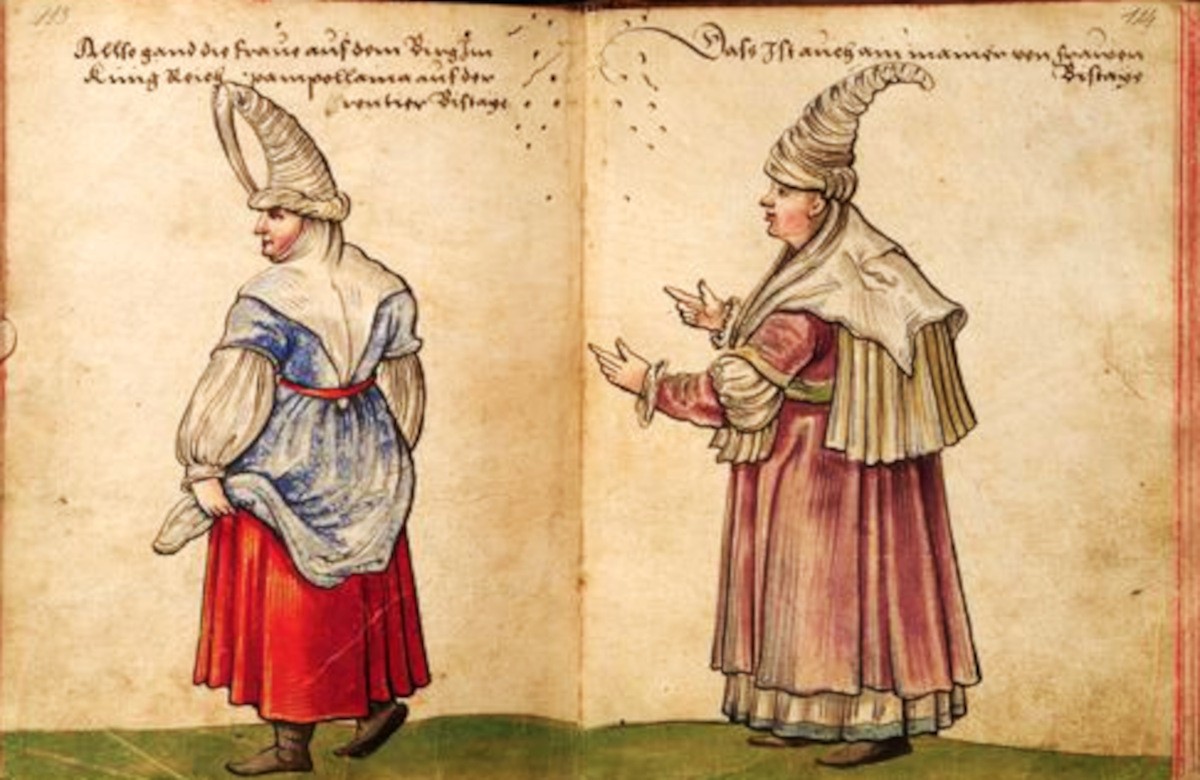 113
Allso gand die fraue auf dem Birg Im
Kung Reich pampollania auf der
rentier Bistaye
124
Dass Ist auch ain manier von frauen
Bistaye